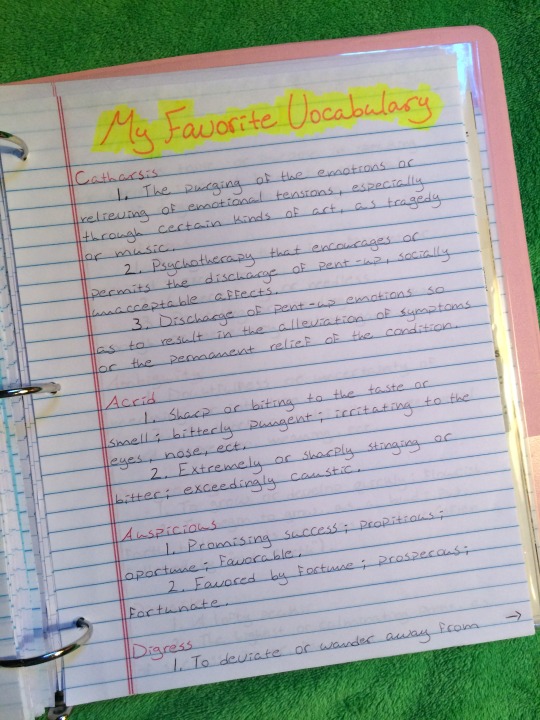 My Favorite Vocabulary
Catharsis
1. The purging of the emotions or
relieving of emotional tensions, especially
through certain kinds of art, as tragedy
or music.
2. Psychotherapy that encourages or
permits the discharge of pent-up, socially
unacceptable affects.
3. Discharge of pent-up emotions so
as to result in the alleviation of symptoms
or the permanent relief of the condition.
Acrid
1. Sharp or biting to the taste or
smell; bitterly pungent; irritating to the
eyes, nose, ect.
2. Extremely or sharply stinging or
bitter; exceedingly caustic.
Auspicious
1. Promising success; propitious;
oportune; favorable.
2. Favored by fortune; prosperous;
fortunate.
Digress
1. To deviate or wander away from →